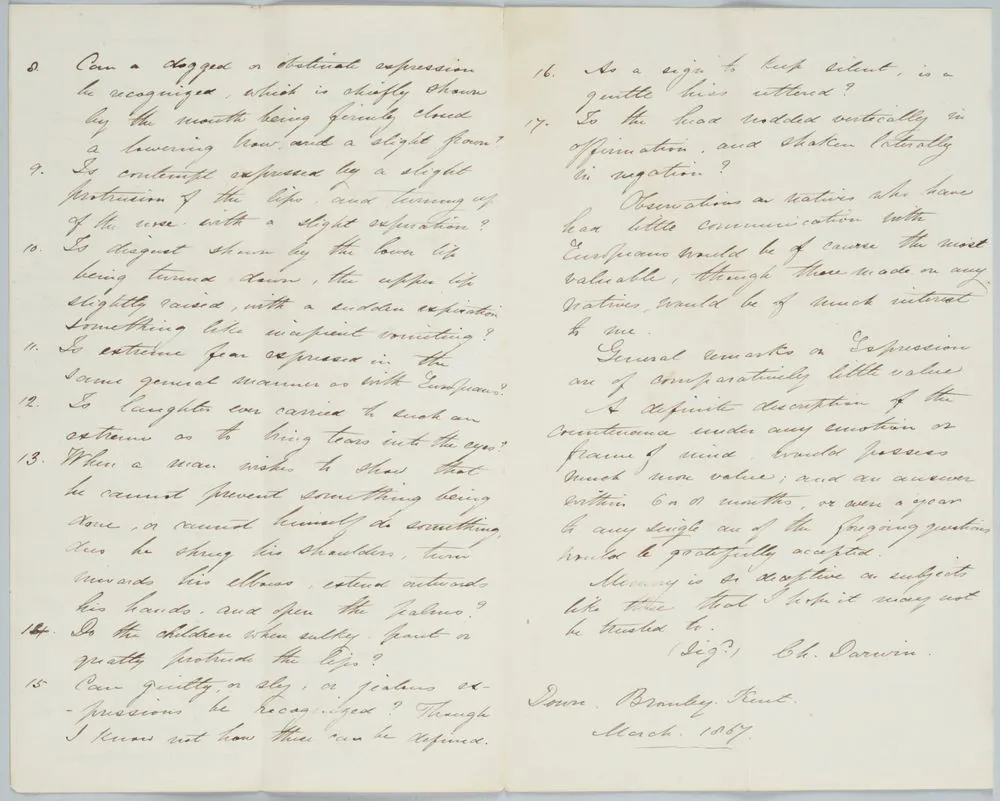 8. Can a dogged or obstinate expression
be recognized, which is chiefly shown
by the mouth being firmly closed
a lowering brow and a slight frown?
9. Is contempt expressed by a slight
protrusion of the lips. and turning up
of the nose with a slight expiration?
10. Is disgust shown by the lower lip
being turned down, the upper lip
slightly raised, with a sudden expiration
something like incipient vomiting?
11. Is extreme fear expressed in the
same general manner as with Europeans?
12. Is laughter ever carried to such an
extreme as to bring tears into the eyes?
13. When a man wishes to show that
he cannot prevent something being
done, or cannot himself do something,
does he shrug his shoulders, turn
inwards his elbows, extend outwards
his hands. and open the palms?
14. Do the children when sulky. pout or
greatly protrude the lips?
15 Can guilty, or sly, or jealous ex-
-pressions be recognized? Though
I know not how these can be defined.
16. As a sign to keep silent, is a
gentle hiss uttered?
17. Is the head nodded vertically in
affirmation, and shaken laterally
in negation?
Observations on natives who have
had little communication with
Europeans would be of course the most
valuable, though those made on any
natives, would be of much interest
to me.
General remarks on Expression
are of comparatively little value
A definite description of the
countenance under any emotion or
frame of mind. would possess
much more value; and an answer
within 6 or 8 months, or even a year
to any single one of the foregoing questions
would be gratefully accepted.
Memory is so deceptive on subjects
like these that I hope it may not
be trusted to.
(Sigd) Ch. Darwin.
Down. Bromley. Kent.
March. 1867.